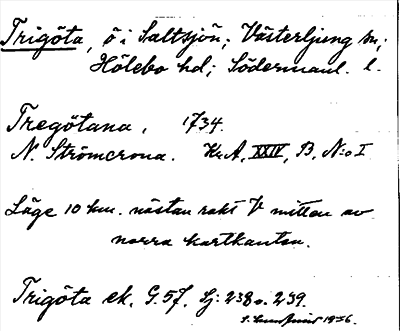 Trigöta, ö i Saltsjön; Västerljung sn;
Hölebo hd; Södermanl. l.
Tregötana, 1734.
N. Strömcrona. Kr. A, XXIV, B, N:o I
Läge 10 km. nästan rakt V mitten av
norra kartkanten.
Trigöta ek. G. 57. Lj: 238 o. 239.
1936.